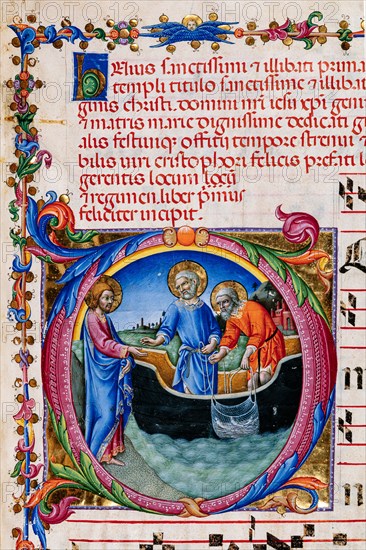 huius sanctissimi et illibati prima
templi titulo sanctissime et illibat
ginis christi domini nri iesu xpi geni
et matris marie dignissime dedicati gr
alis festiuique offitij tempore strenui et
bilis uiri cristophori felicis prefati l
gerentis locum
regimen liber primus
feliciter incipit.